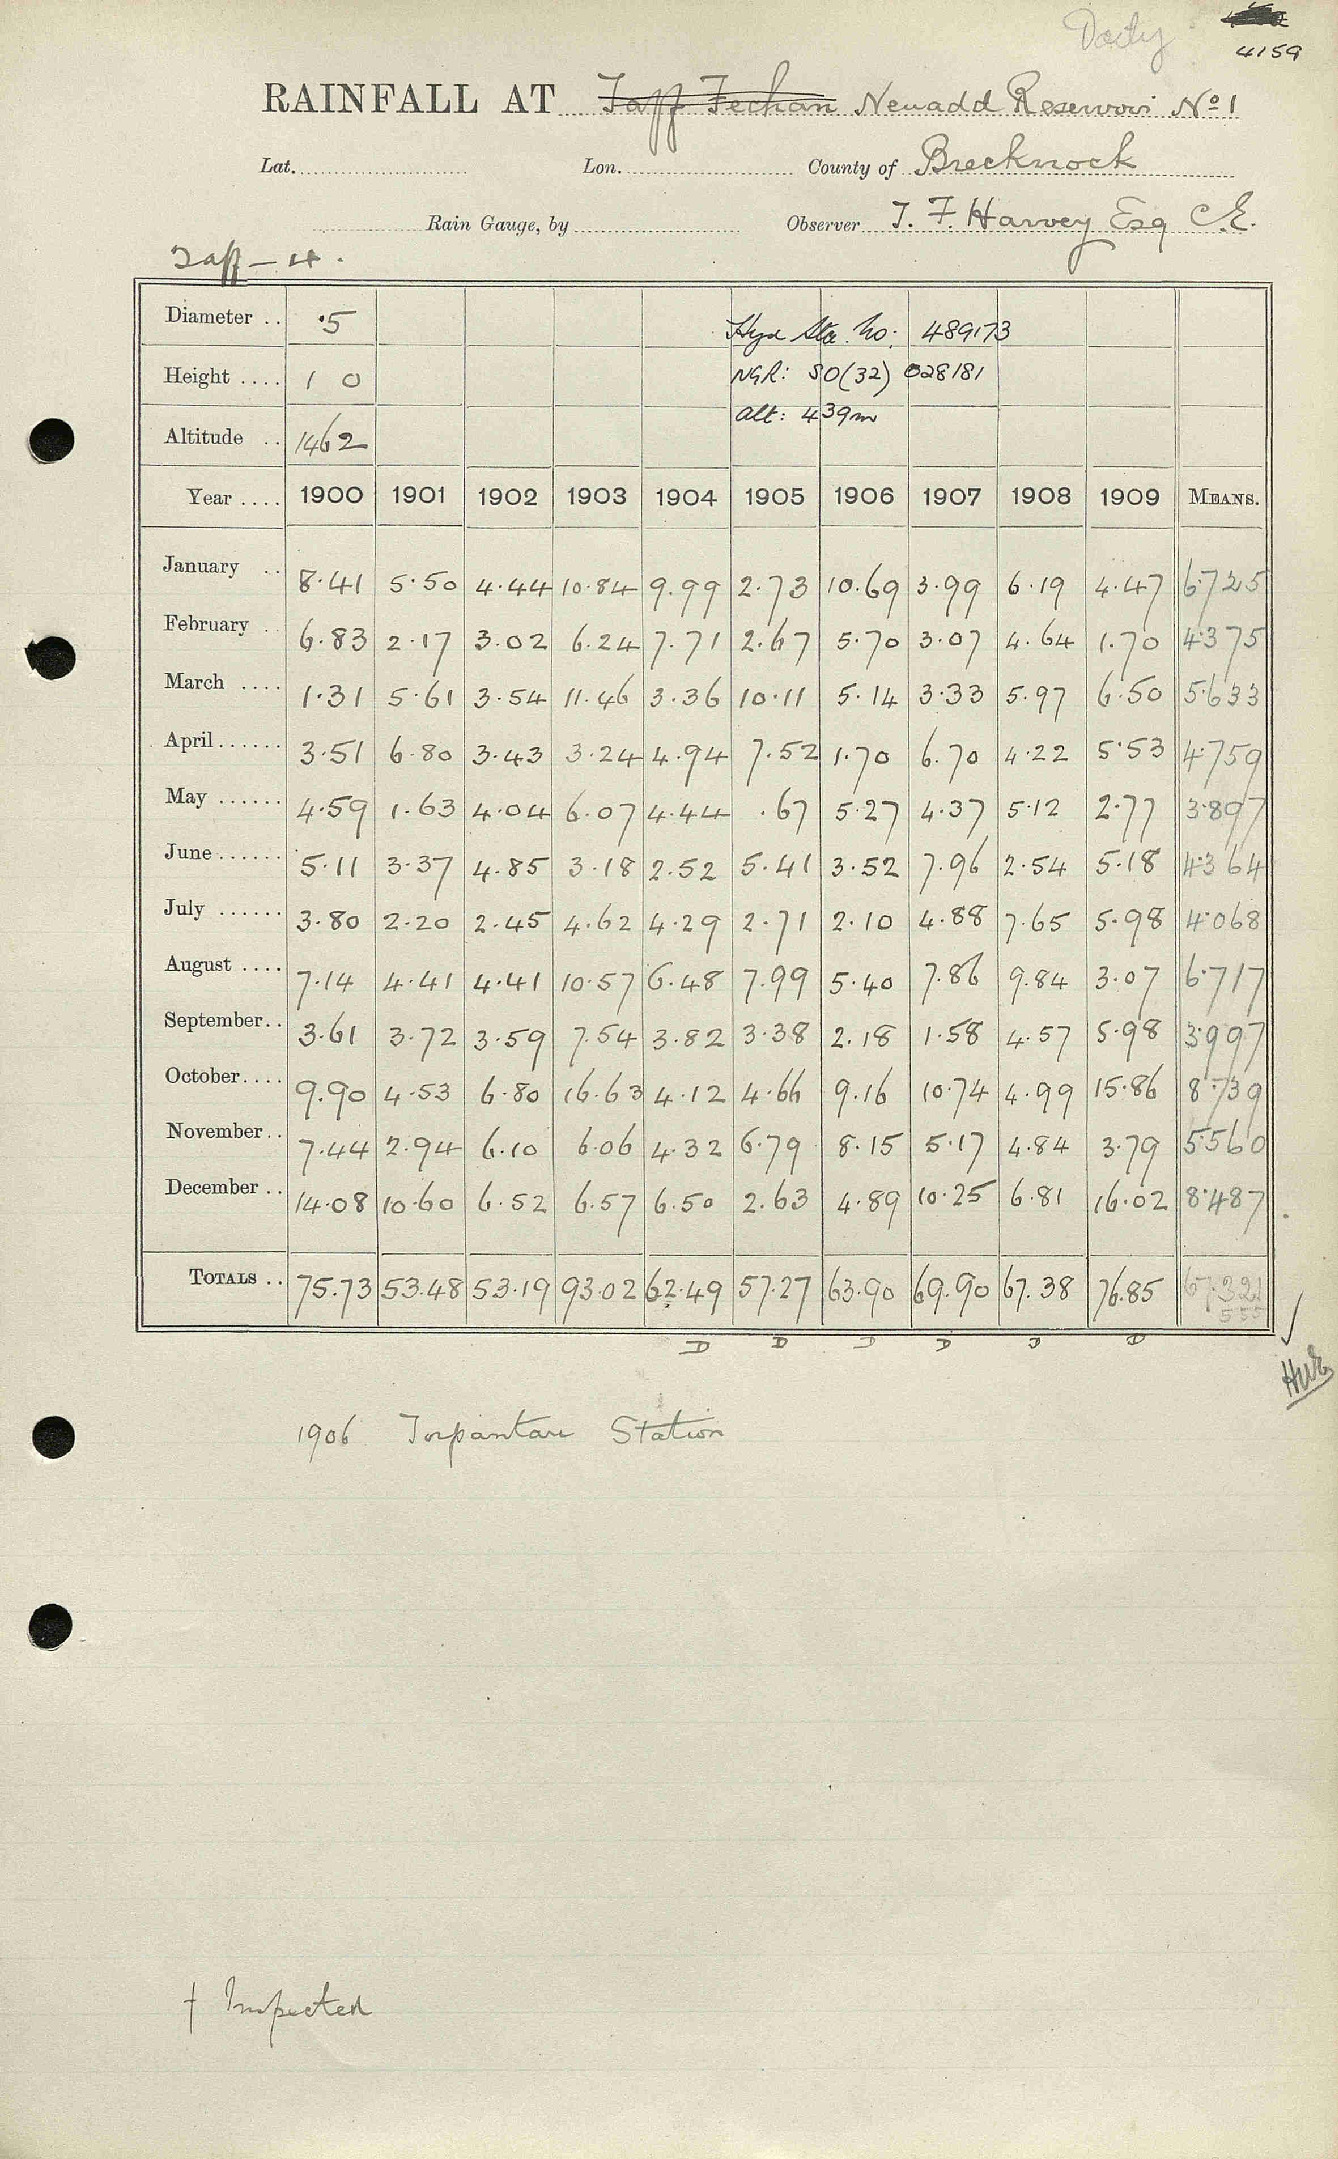 Daily
4159
RAINFALL AT Taff Fechan Neuadd Reservoir No 1
Lat. Lon. County of Brecknock
Rain Gauge, by Observer T. F. Harvey Esq C.E.
Taff - 4.
Diameter .. .5 Hyd Sta. No: 489173
Height .... 1 0 NGR: SO(32) 028181
Alt: 439m
Altitude .. 1462
Year .... 1900 1901 1902 1903 1904 1905 1906 1907 1908 1909 MEANS.
January .. 8.41 5.50 4.44 10.84 9.99 2.73 10.69 3.99 6.19 4.47 6.725
February .. 6.83 2.17 3.02 6.24 7.71 2.67 5.70 3.07 4.64 1.70 4.375
March .... 1.31 5.61 3.54 11.46 3.36 10.11 5.14 3.33 5.97 6.50 5.633
April ...... 3.51 6.80 3.43 3.24 4.94 7.52 1.70 6.70 4.22 5.53 4.759
May ...... 4.59 1.63 4.04 6.07 4.44 .67 5.27 4.37 5.12 2.77 3.897
June ...... 5.11 3.37 4.85 3.18 2.52 5.41 3.52 7.96 2.54 5.18 4.364
July ...... 3.80 2.20 2.45 4.62 4.29 2.71 2.10 4.88 7.65 5.98 4.068
August .... 7.14 4.41 4.41 10.57 6.48 7.99 5.40 7.86 9.84 3.07 6.717
September .. 3.61 3.72 3.59 7.54 3.82 3.38 2.18 1.58 4.57 5.98 3.997
October .... 9.90 4.53 6.80 16.63 4.12 4.66 9.16 10.74 4.99 15.86 8.739
November .. 7.44 2.94 6.10 6.06 4.32 6.79 8.15 5.17 4.84 3.79 5.560
December .. 14.08 10.60 6.52 6.57 6.50 2.63 4.89 10.25 6.81 16.02 8.487
TOTALS .. 75.73 53.48 53.19 93.02 62.49 57.27 63.90 69.90 67.38 76.85 67.321
D D D D D D
1906 Torpantau Station
† Inspected